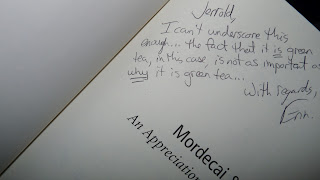 Jerrold,
I can't underscore this
enough... the fact that it is green
tea, in this case, is not as important as
why it is green tea...
With regards,
Mordecai
An Appreciation